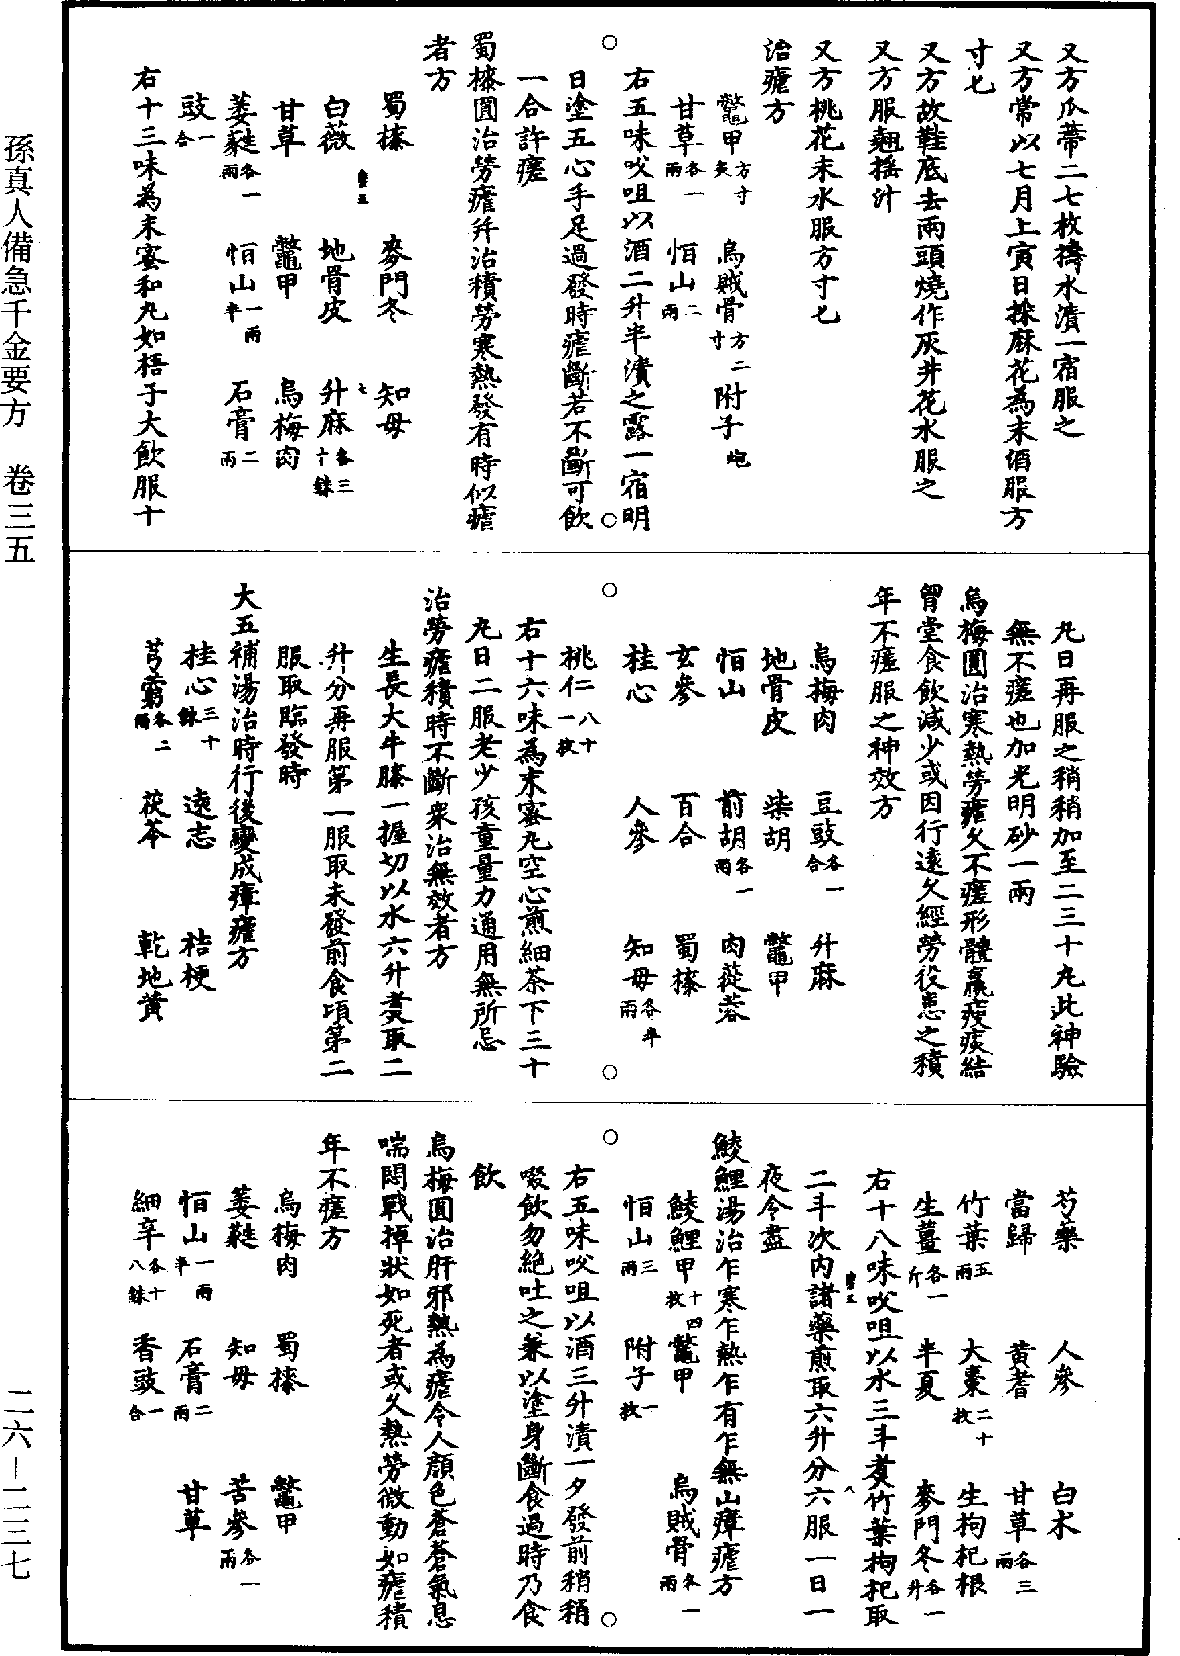 又方瓜蒂二七枚擣水漬一宿服之
又方常以七月上寅日採麻花為末酒服方
寸匕
又方故鞋底去兩頭燒作灰井花水服之
又方服翹搖汁
又方桃花末水服方寸匕
治瘧方
鼈甲方寸炙 烏賊骨方二寸 附子炮
甘草各一兩 恒山二兩
右五味㕮咀以酒二升半漬之露一宿明
日塗五心手足過發時瘧斷若不斷可飲
一合許瘥
蜀㯃圓治勞瘧幷治積勞寒熱發有時似瘧
者方
蜀㯃 麥門冬 知母
白薇 地骨皮 升麻各三十銖
甘草 鼈甲 烏梅肉
萎蕤各一兩 恒山一兩半 石膏二兩
豉一合
右十三味為末蜜和丸如梧子大飲服十
丸日再服之稍稍加至二三十丸此神驗
無不瘥也加光明砂一兩
烏梅圓治寒熱勞瘧久不瘥形體羸瘦痰結
胷堂食飲減少或因行遠久經勞役患之積
年不瘥服之神效方
烏梅肉 豆豉各一合 升麻
地骨皮 柴胡 鼈甲
恒山 前胡各一兩 肉蓯蓉
玄參 百合 蜀㯃
桂心 人參 知母各半兩
桃仁八十一枚
右十六味為末蜜丸空心煎細茶下三十
丸日二服老少孩童量力通用無所忌
治勞瘧積時不斷衆治無效者方
生長大牛膝一握切以水六升煑取二
升分再服第一服取未發前食頃第二
服取臨發時
大五補湯治時行後變成瘴瘧方
桂心三十銖 遠志 桔梗
芎藭各二兩 茯苓 乾地黃
芍藥 人參 白术
當歸 黃耆 甘草各三兩
竹葉五兩 大棗二十枚 生枸杞根
生薑各一斤 半夏 麥門冬各一升
右十八味㕮咀以水三斗煑竹葉枸杞取
二斗次內諸藥煎取六升分六服一日一
夜令盡
鯪鯉湯治乍寒乍熱乍有乍無山瘴瘧方
鯪鯉甲十四枚 鼈甲 烏賊骨各一兩
恒山三兩 附子一枚
右五味㕮咀以酒三升漬一夕發前稍稍
啜飲勿絕吐之兼以塗身斷食過時乃食
飲
烏梅圓治肝邪熱為瘧令人顏色蒼蒼氣息
喘悶戰掉狀如死者或久熱勞微動如瘧積
年不瘥方
烏梅肉 蜀㯃 鼈甲
萎蕤 知母 苦參各一兩
恒山一兩半 石膏二兩 甘草
細辛各十八銖 香豉一合
孫真人備急千金要方 卷三五
二六—二三七